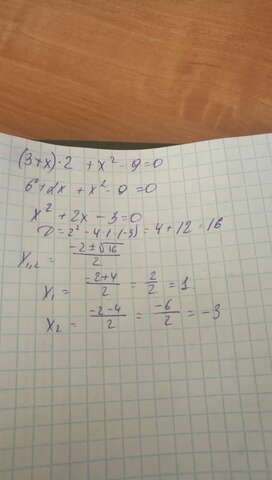 (3+x)·2 + x² - 9 = 0
6 + 2x + x² - 9 = 0
x² + 2x - 3 = 0
D = 2² - 4·1·(-3) = 4 + 12 = 16
x₁,₂ = (-2 ± √16)/2
x₁ = (-2+4)/2 = 2/2 = 1
x₂ = (-2-4)/2 = -6/2 = -3